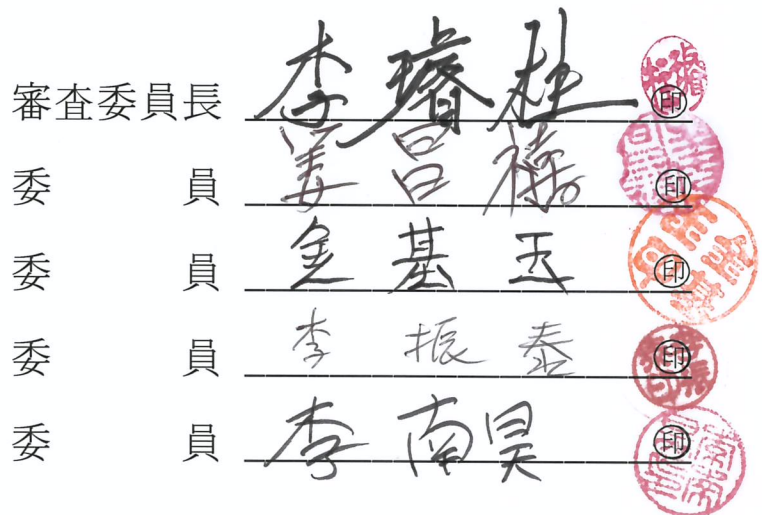 審査委員長 李璿柱 印
委員 姜呂禧 印
委員 金基玉 印
委員 李振泰 印
委員 李南昊 印